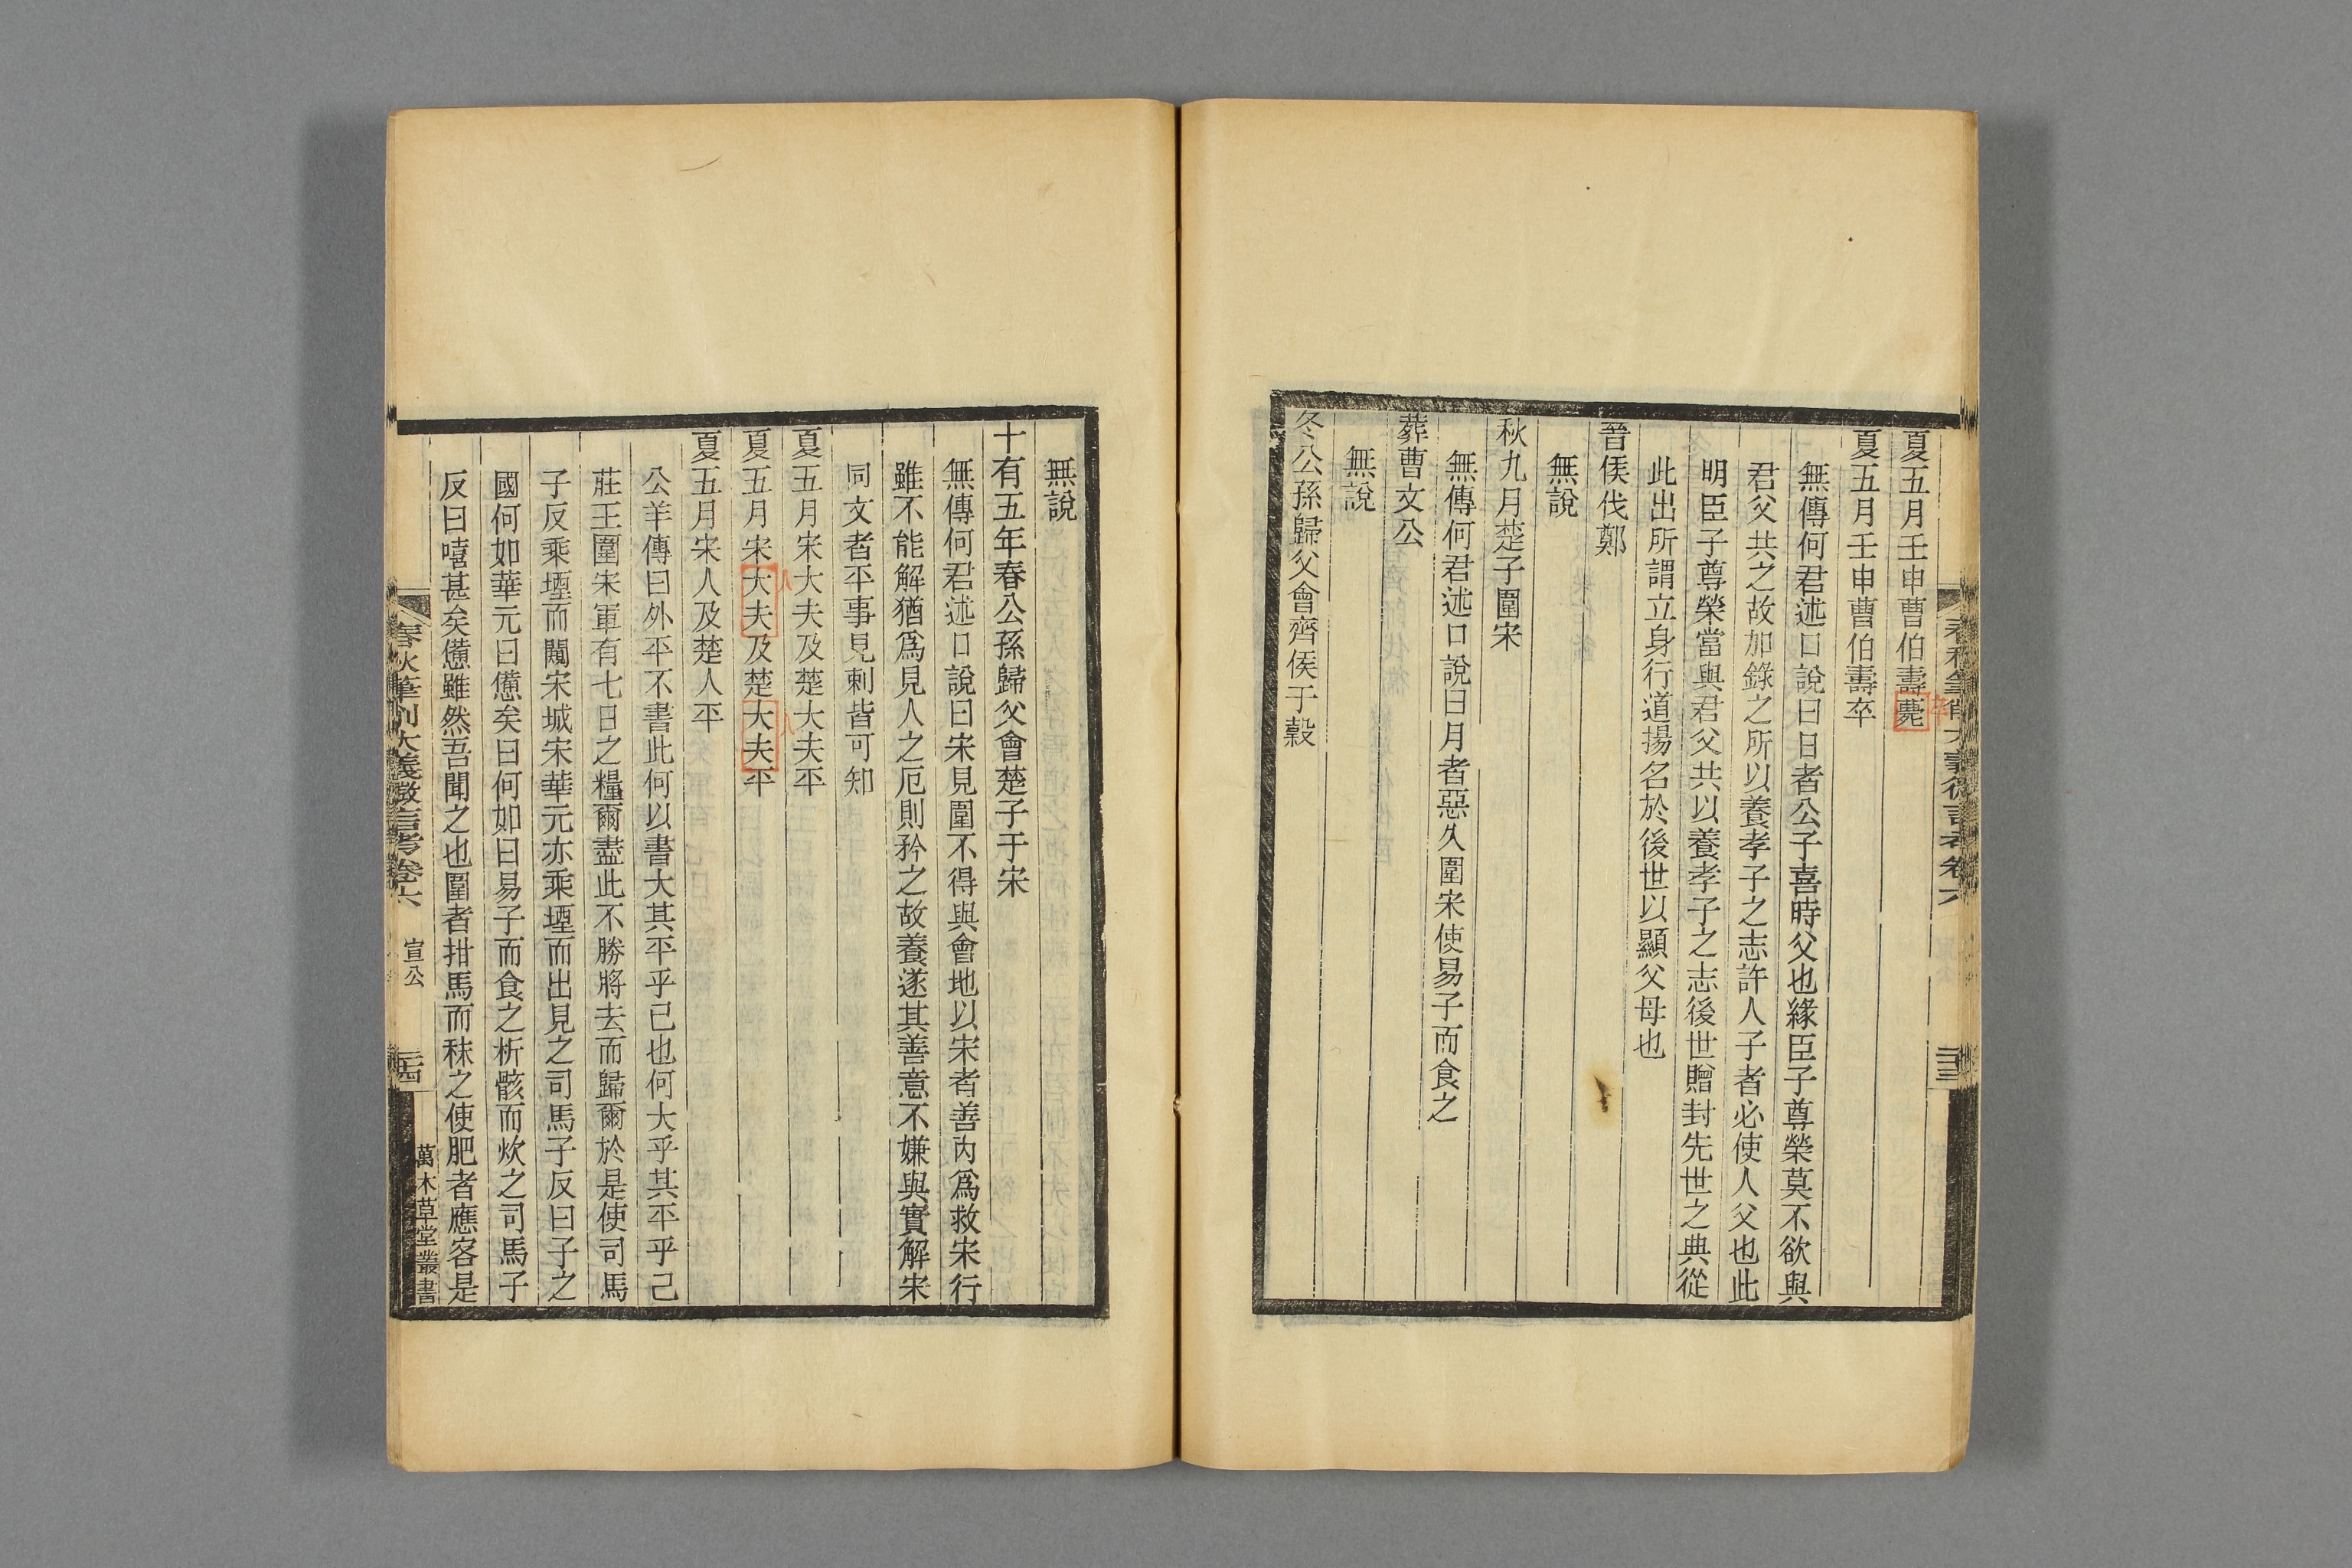 夏五月壬申曹伯壽薨
卒
夏五月壬申曹伯壽卒
無傳何君述口說曰日者公子喜時父也緣臣子尊榮莫不欲與
君父共之故加錄之所以養孝子之志許人子者必使人父也此
明臣子尊榮當與君父共以養孝子之志後世贈封先世之典從
此出所謂立身行道揚名於後世以顯父母也
晉侯伐鄭
無說
秋九月楚子圍宋
無傳何君述口說曰月者惡久圍宋使易子而食之
葬曹文公
無說
冬公孫歸父會齊侯于穀
春秋筆削大義微言考卷六
二十三
無說
十有五年春公孫歸父會楚子于宋
無傳何君述口說曰宋見圍不得與會地以宋者善內爲救宋行
雖不能解猶爲見人之厄則矜之故養遂其善意不嫌與實解宋
同文者平事見刺皆可知
夏五月宋大夫及楚大夫平
人
人
夏五月宋大夫及楚大夫平
夏五月宋人及楚人平
公羊傳曰外平不書此何以書大其平乎己也何大乎其平乎己
莊王圍宋軍有七日之糧爾盡此不勝將去而歸爾於是使司馬
子反乘堙而闚宋城宋華元亦乘堙而出見之司馬子反曰子之
國何如華元曰憊矣曰何如曰易子而食之析骸而炊之司馬子
反曰嘻甚矣憊雖然吾聞之也圍者拑馬而秣之使肥者應客是
春秋筆削大義微言考卷六
宣公
二十四
萬木草堂叢書